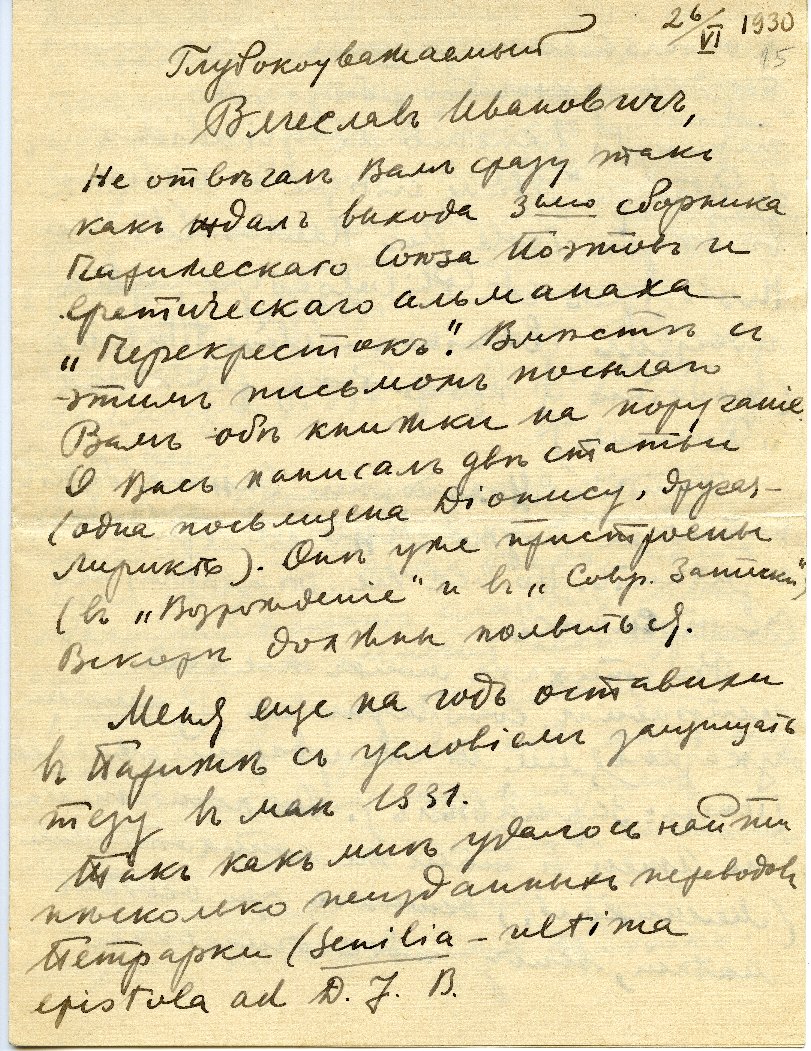 26/VI 1930
95
Глубокоуважаемый
Вячеславъ Ивановичъ,
Не отвѣчалъ Вамъ сразу такъ
какъ ждалъ выхода 3ьяго сборника
Парижскаго Союза Поэтовъ и
еретическаго альманаха
„Перекрестокъ". Вмѣстѣ и
этимъ письмомъ посылаю
Вамъ обѣ книжки на поруганіе.
О Васъ написалъ двѣ статьи
(одна посьящена Діонису, другая –
лирикѣ). Онѣ уже пристроены
(въ „Возрожденіе" и въ „Совр. Записки")
Вскорѣ должны появиться.
Меня еще на годъ оставили
въ Парижѣ съ условіемъ защищать
тезу въ маѣ 1931.
Такъ какъ мнѣ удалось найти
нѣсколько неизданныхъ переводовъ
Петрарки (Senilia – ultima
epistola ad D. J. B.